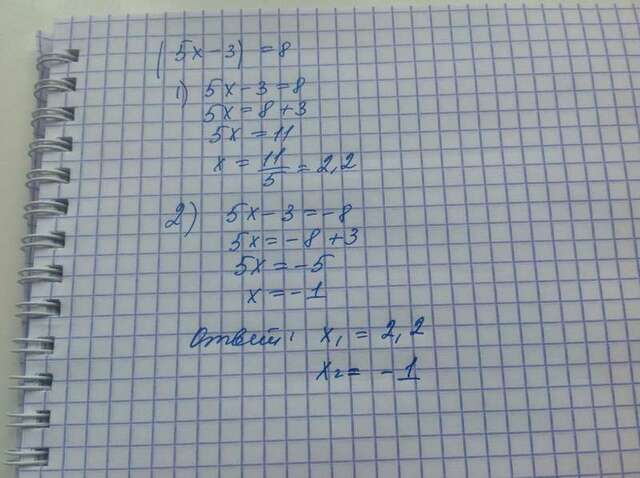 (5x-3) = 8
1) 5x-3=8
5x=8+3
5x=11
x=11/5=2,2
2) 5x-3=-8
5x=-8+3
5x=-5
x=-1
Ответ: x₁ = 2,2
x₂ = -1